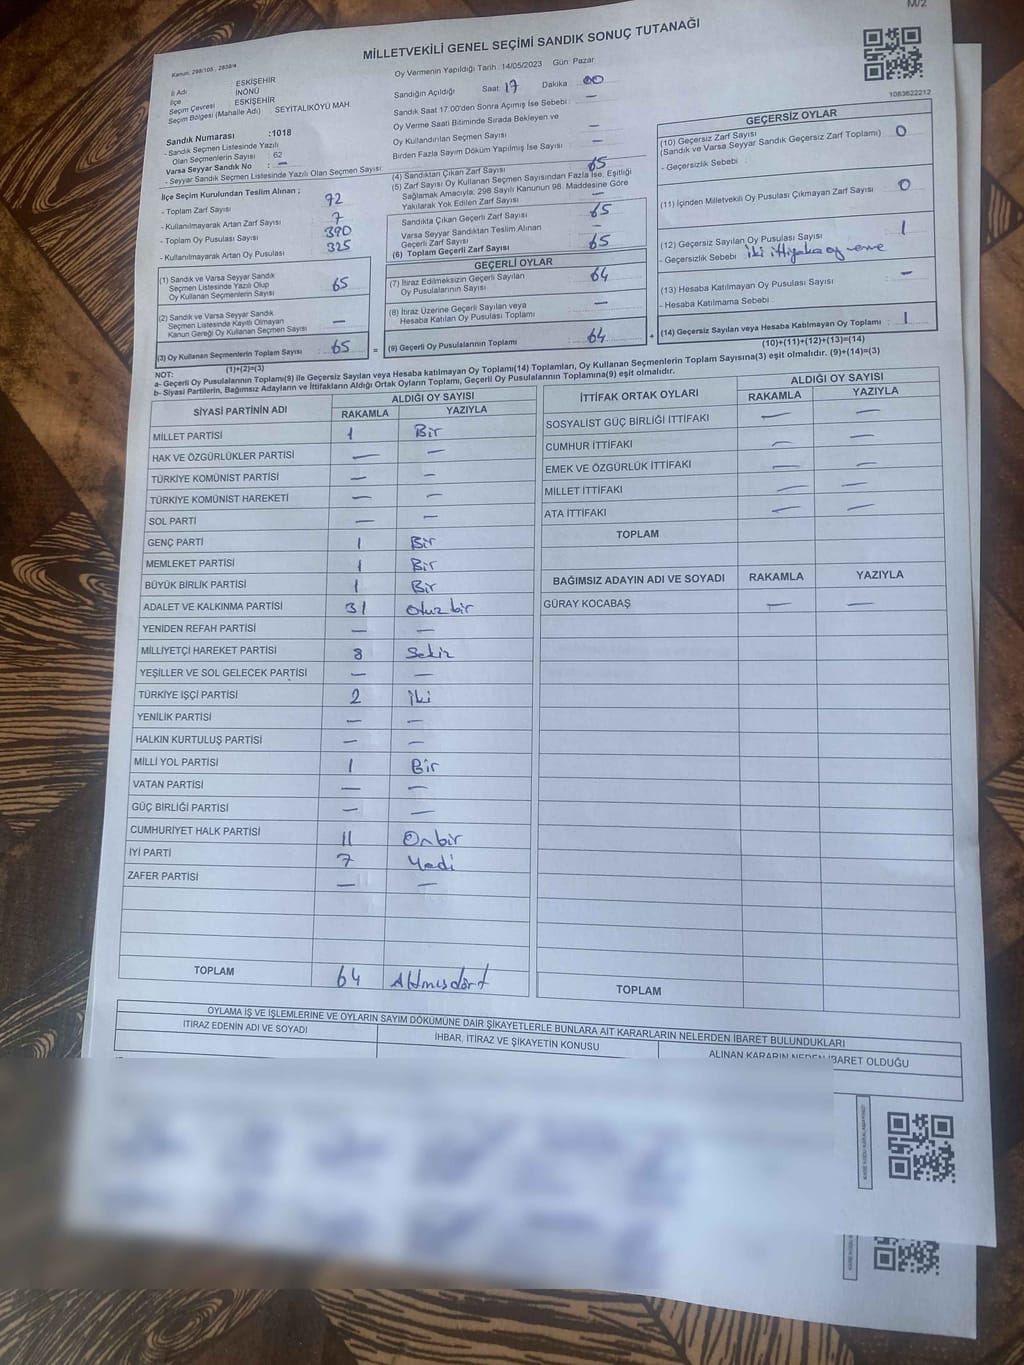 M/2
MİLLETVEKİLİ GENEL SEÇİMİ SANDIK SONUÇ TUTANAĞI
Kanun: 298/105 , 2839/4
Oy Vermenin Yapıldığı Tarih : 14/05/2023 Gün: Pazar
İl Adı : ESKİŞEHİR
İlçe : İNÖNÜ
Seçim Çevresi : ESKİŞEHİR
Seçim Bölgesi (Mahalle Adı) : SEYİTALİKÖYÜ MAH.
Sandığın Açıldığı Saat 17 Dakika 00
Sandık Saat 17.00'den Sonra Açımış İse Sebebi : —
Oy Verme Saati Bitiminde Sırada Bekleyen ve
Oy Kullandırılan Seçmen Sayısı —
Birden Fazla Sayım Döküm Yapılmış İse Sayısı —
1083622212
Sandık Numarası :1018
- Sandık Seçmen Listesinde Yazılı
Olan Seçmenlerin Sayısı : 62
Varsa Seyyar Sandık No : —
- Seyyar Sandık Seçmen Listesinde Yazılı Olan Seçmen Sayısı:
İlçe Seçim Kurulundan Teslim Alınan ;
- Toplam Zarf Sayısı 72
- Kullanılmayarak Artan Zarf Sayısı 7
- Toplam Oy Pusulası Sayısı 390
- Kullanılmayarak Artan Oy Pusulası 325
(1) Sandık ve Varsa Seyyar Sandık
Seçmen Listesinde Yazılı Olup
Oy Kullanan Seçmenlerin Sayısı 65
(2) Sandık ve Varsa Seyyar Sandık
Seçmen Listesinde Kayıtlı Olmayan
Kanun Gereği Oy Kullanan Seçmen Sayısı —
(3) Oy Kullanan Seçmenlerin Toplam Sayısı : 65
(1)+(2)=(3)
(4) Sandıktan Çıkan Zarf Sayısı 65
(5) Zarf Sayısı Oy Kullanan Seçmen Sayısından Fazla İse, Eşitliği
Sağlamak Amacıyla, 298 Sayılı Kanunun 98. Maddesine Göre
Yakılarak Yok Edilen Zarf Sayısı —
Sandıkta Çıkan Geçerli Zarf Sayısı 65
Varsa Seyyar Sandıktan Teslim Alınan
Geçerli Zarf Sayısı —
(6) Toplam Geçerli Zarf Sayısı 65
GEÇERLİ OYLAR
(7) İtiraz Edilmeksizin Geçerli Sayılan
Oy Pusulalarının Sayısı 64
(8) İtiraz Üzerine Geçerli Sayılan veya
Hesaba Katılan Oy Pusulası Toplamı —
= (9) Geçerli Oy Pusulalarının Toplamı 64
GEÇERSİZ OYLAR
(10) Geçersiz Zarf Sayısı
(Sandık ve Varsa Seyyar Sandık Geçersiz Zarf Toplamı) 0
- Geçersizlik Sebebi :
(11) İçinden Milletvekili Oy Pusulası Çıkmayan Zarf Sayısı 0
(12) Geçersiz Sayılan Oy Pusulası Sayısı 1
- Geçersizlik Sebebi : iki ittifaka oy verme
(13) Hesaba Katılmayan Oy Pusulası Sayısı : —
- Hesaba Katılmama Sebebi :
+ (14) Geçersiz Sayılan veya Hesaba Katılmayan Oy Toplamı : 1
(10)+(11)+(12)+(13)=(14)
NOT:
a- Geçerli Oy Pusulalarının Toplamı(9) ile Geçersiz Sayılan veya Hesaba katılmayan Oy Toplamı(14) Toplamları, Oy Kullanan Seçmenlerin Toplam Sayısına(3) eşit olmalıdır. (9)+(14)=(3)
b- Siyasi Partilerin, Bağımsız Adayların ve İttifakların Aldığı Ortak Oyların Toplamı, Geçerli Oy Pusulalarının Toplamına(9) eşit olmalıdır.
SİYASİ PARTİNİN ADI ALDIĞI OY SAYISI
RAKAMLA YAZIYLA
MİLLET PARTİSİ 1 Bir
HAK VE ÖZGÜRLÜKLER PARTİSİ — —
TÜRKİYE KOMÜNİST PARTİSİ — —
TÜRKİYE KOMÜNİST HAREKETİ — —
SOL PARTİ — —
GENÇ PARTİ 1 Bir
MEMLEKET PARTİSİ 1 Bir
BÜYÜK BİRLİK PARTİSİ 1 Bir
ADALET VE KALKINMA PARTİSİ 31 otuz bir
YENİDEN REFAH PARTİSİ — —
MİLLİYETÇİ HAREKET PARTİSİ 8 Sekiz
YEŞİLLER VE SOL GELECEK PARTİSİ — —
TÜRKİYE İŞÇİ PARTİSİ 2 İki
YENİLİK PARTİSİ — —
HALKIN KURTULUŞ PARTİSİ — —
MİLLİ YOL PARTİSİ 1 Bir
VATAN PARTİSİ — —
GÜÇ BİRLİĞİ PARTİSİ — —
CUMHURİYET HALK PARTİSİ 11 Onbir
İYİ PARTİ 7 Yedi
ZAFER PARTİSİ — —
TOPLAM 64 Altmışdört
İTTİFAK ORTAK OYLARI ALDIĞI OY SAYISI
RAKAMLA YAZIYLA
SOSYALİST GÜÇ BİRLİĞİ İTTİFAKI — —
CUMHUR İTTİFAKI — —
EMEK VE ÖZGÜRLÜK İTTİFAKI — —
MİLLET İTTİFAKI — —
ATA İTTİFAKI — —
TOPLAM
BAĞIMSIZ ADAYIN ADI VE SOYADI RAKAMLA YAZIYLA
GÜRAY KOCABAŞ — —
TOPLAM
OYLAMA İŞ VE İŞLEMLERİNE VE OYLARIN SAYIM DÖKÜMÜNE DAİR ŞİKAYETLERLE BUNLARA AİT KARARLARIN NELERDEN İBARET BULUNDUKLARI
İTİRAZ EDENİN ADI VE SOYADI İHBAR, İTİRAZ VE ŞİKAYETİN KONUSU ALINAN KARARIN NEDEN İBARET OLDUĞU